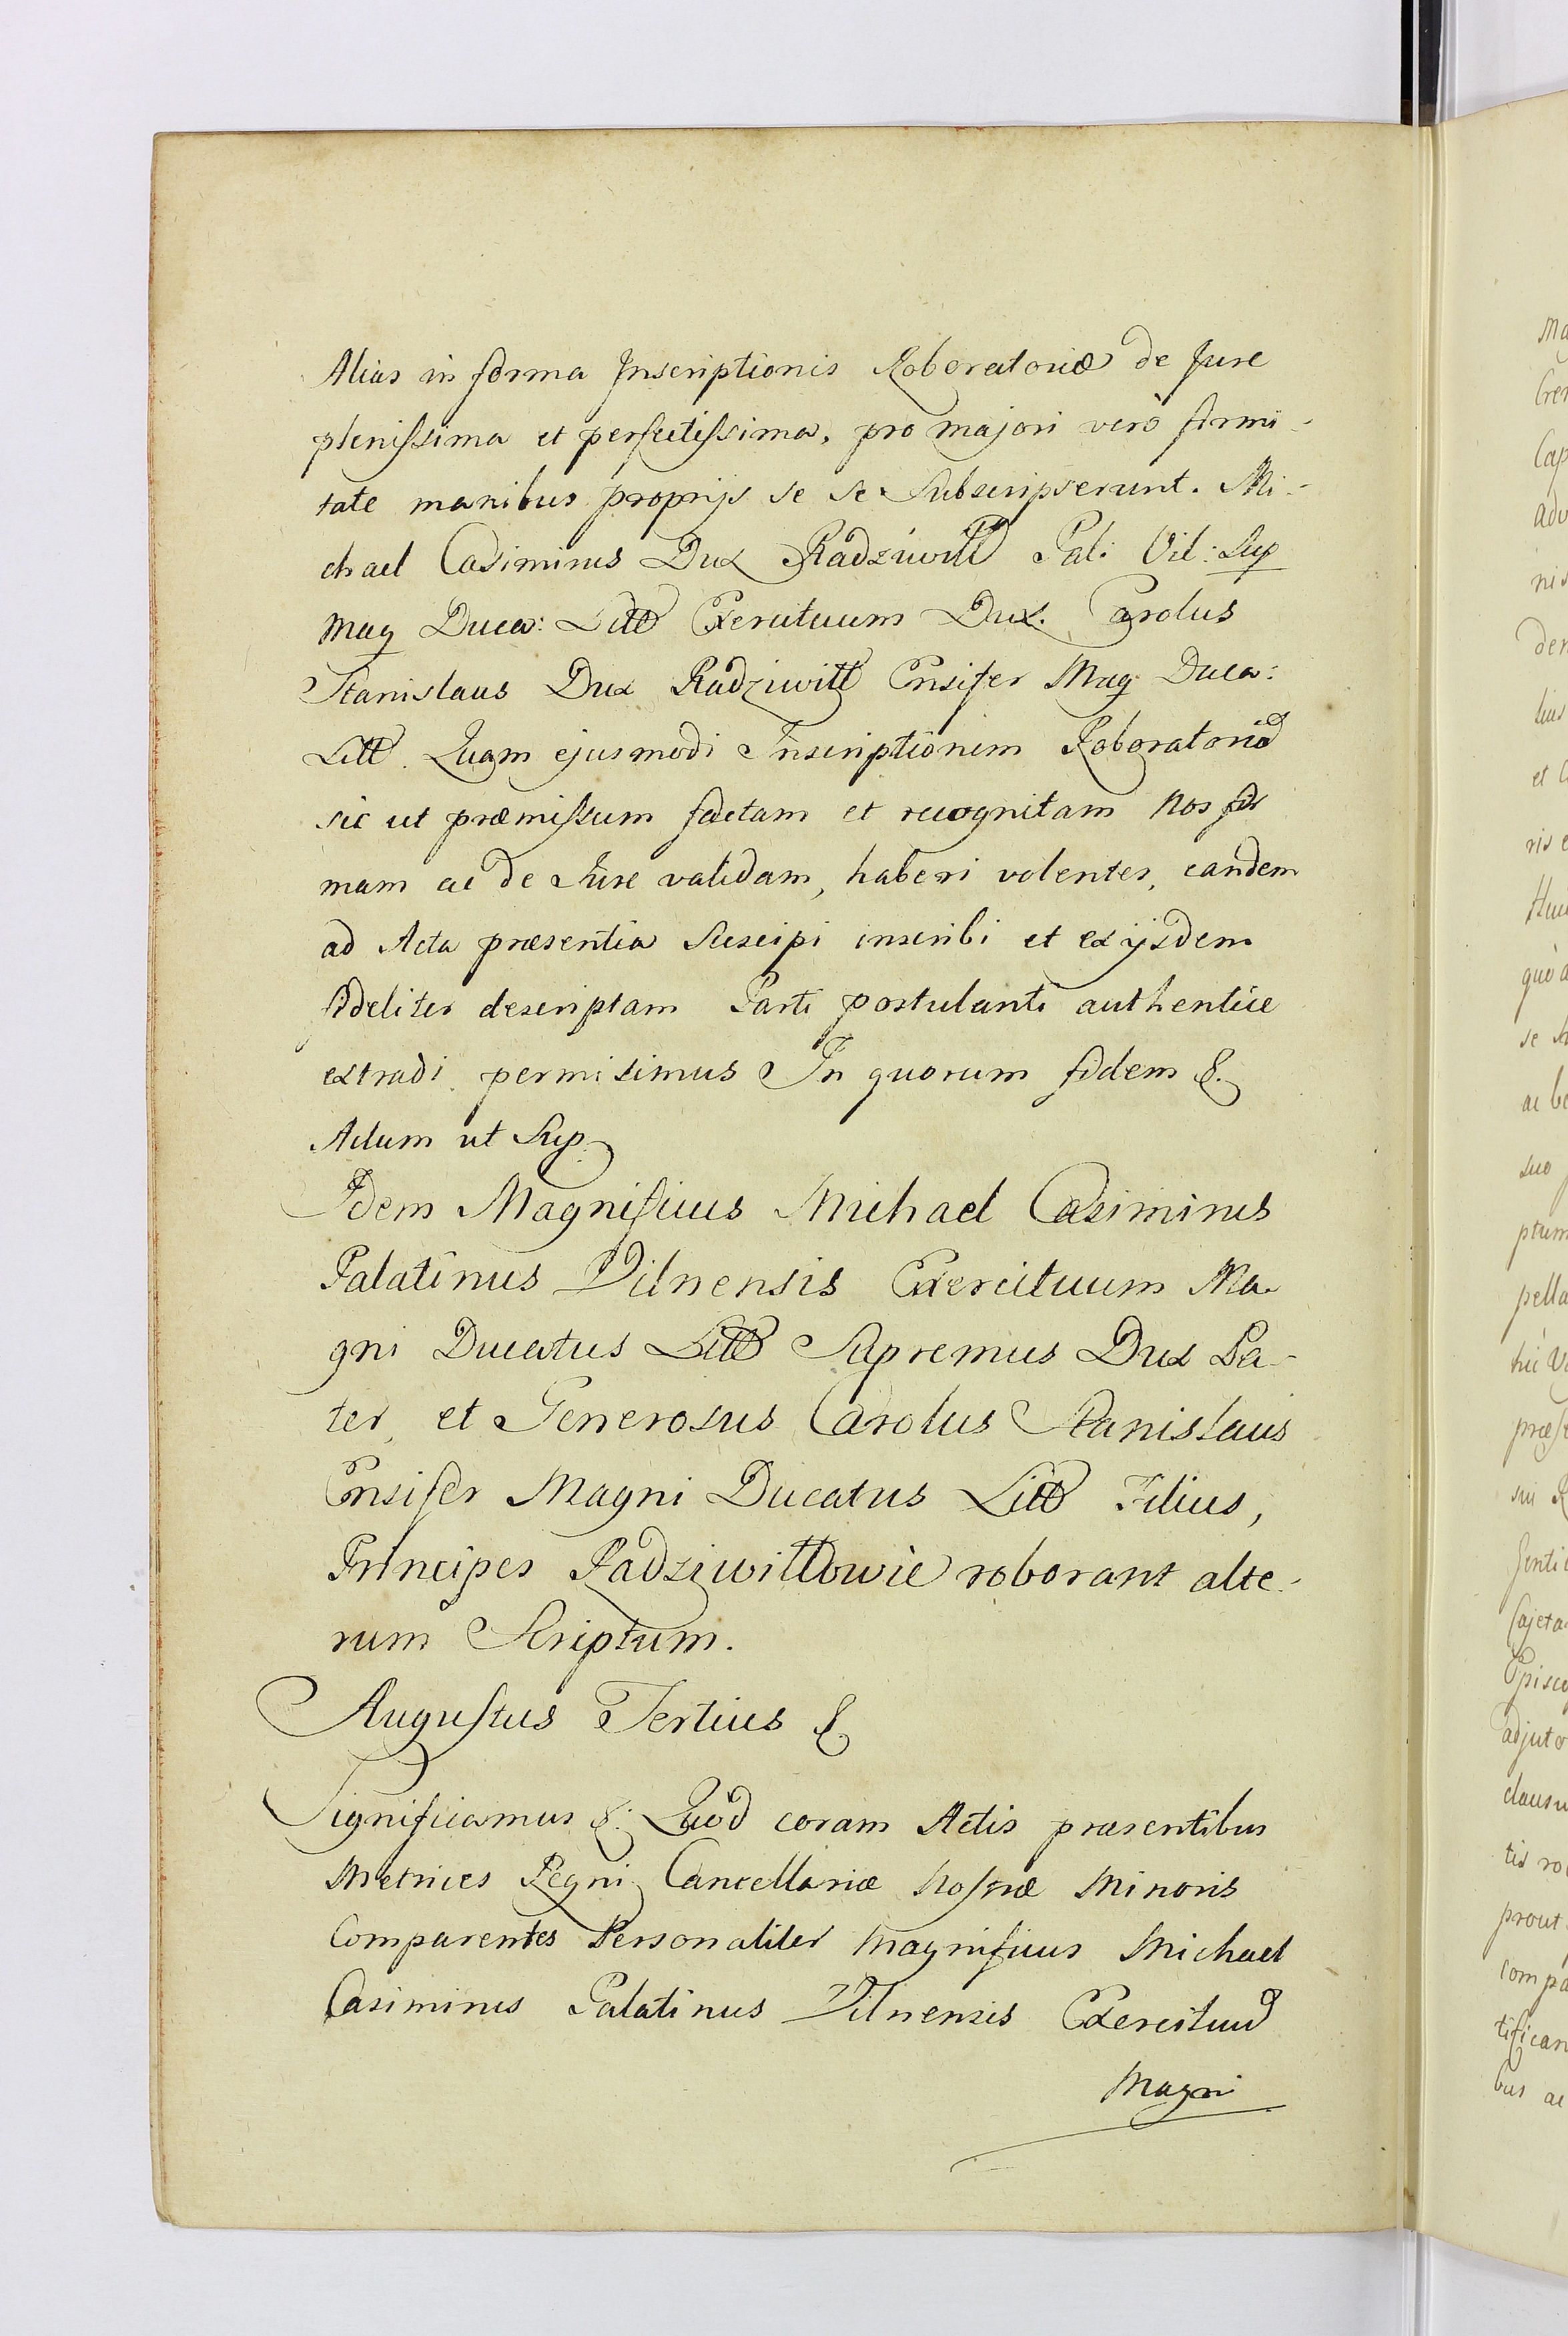 Alias in forma Inscriptionis Roboratoriæ de Jure
plenissima et perfectissima, pro majori verò firmi-
tate manibus proprijs se se Subscripserunt. Mi-
chael Casimirus Dux Radziwiłł Pal: Vil: Sup
Mag Duca: Litt Exercituum Dux. Carolus
Stanislaus Dux Radziwiłł Ensifer Mag Duca:
Litt. Quam ejusmodi Inscriptionem Roboratoriã
sic ut præmissum factam et recognitam Nos fir
mam ac de Jure validam, haberi volentes, eandem
ad Acta præsentia Suscipi inscribi et ex ijsdem
fideliter descriptam Parti postulanti authentice
extradi permisimus In quorum fidem &.
Actum ut Sup.
Idem Magnificus Michael Casimirus
Palatinus Vilnensis Exercituum Ma
gni Ducatus Litt Supremus Dux Pa-
ter, et Generosus Carolus Stanislaus
Ensifer Magni Ducatus Litt Filius,
Principes Radziwiłłowie roborant alte-
rum Scriptum.
Augustus Tertius &.
Significamus &: Quod coram Actis præsentibus
Metrices Regni Cancellariæ Nostræ Minoris
Comparentes Personaliter Magnificus Michael
Casimirus Palatinus Vilnensis Exercituũ
Magni